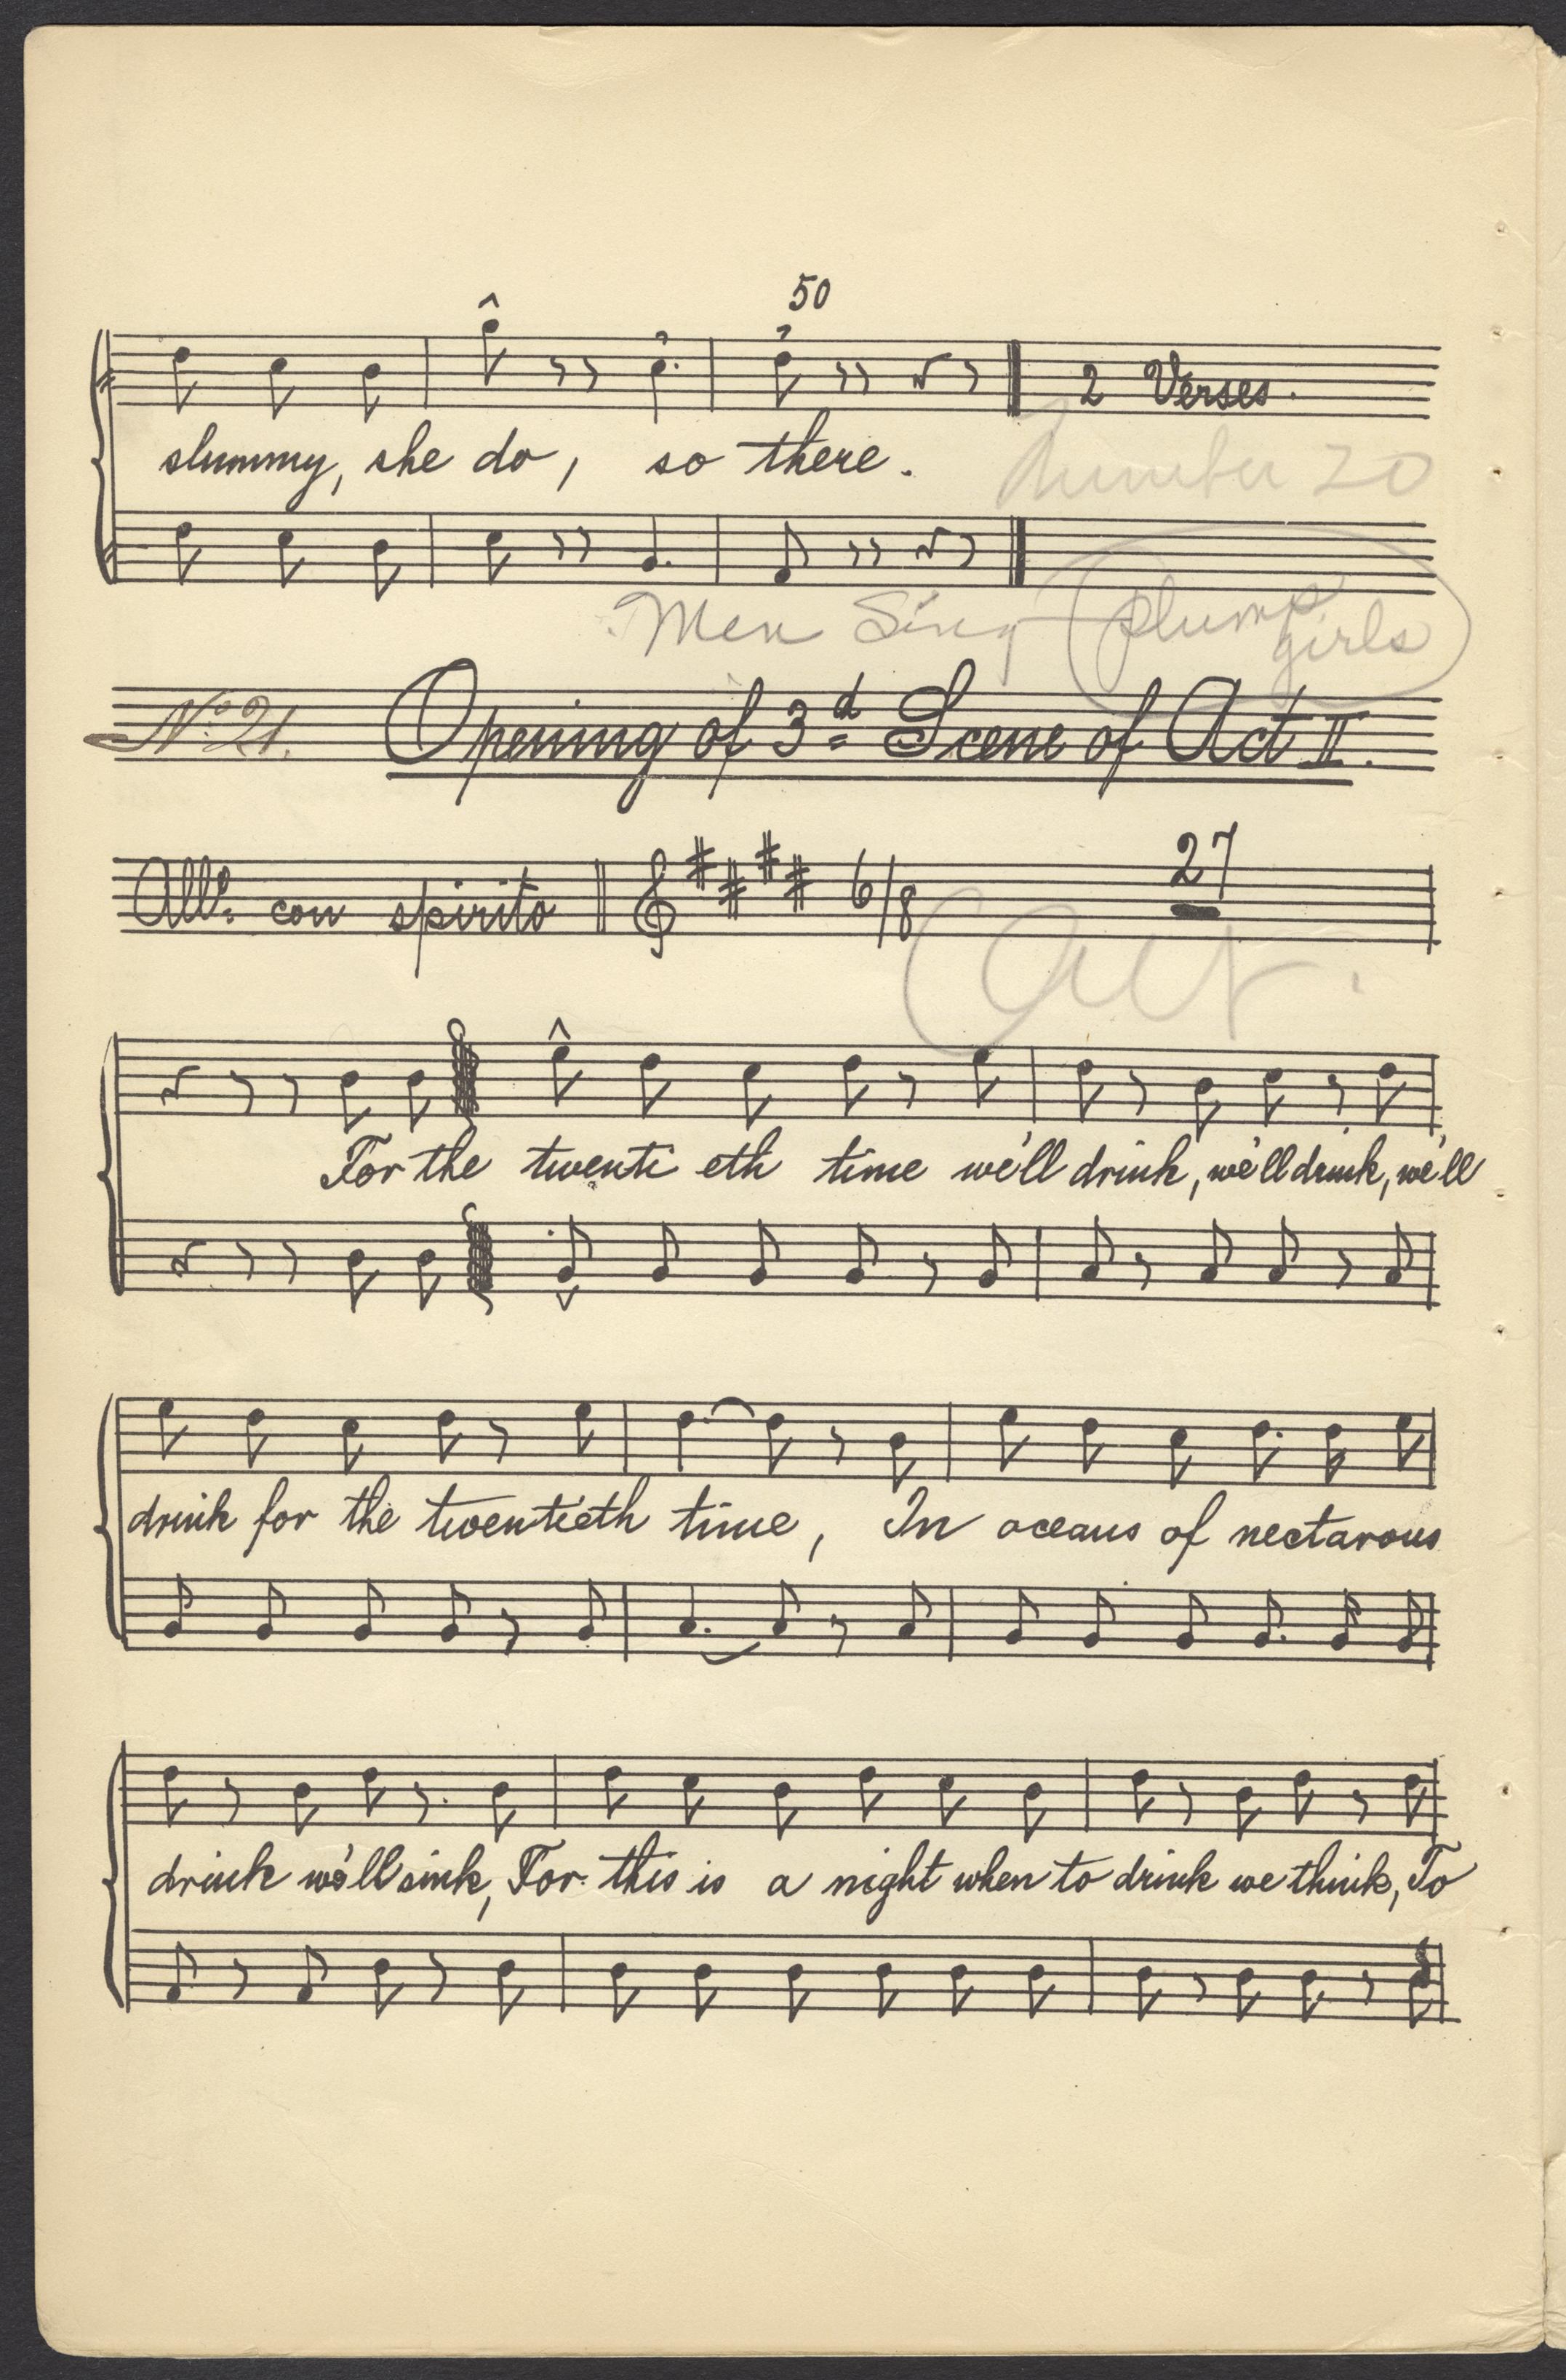 50
2 Verses.
slummy, she do, so there.
Number 20
Men Sing (plump girls)
No. 21. Opening of 3d Scene of Act II.
Allo. con spirito 6/8 27
Cut.
For the twenti eth time we'll drink, we'll drink, we'll
drink for the twentieth time, In oceans of nectarous
drink we'll sink, For this is a night when to drink we think, To